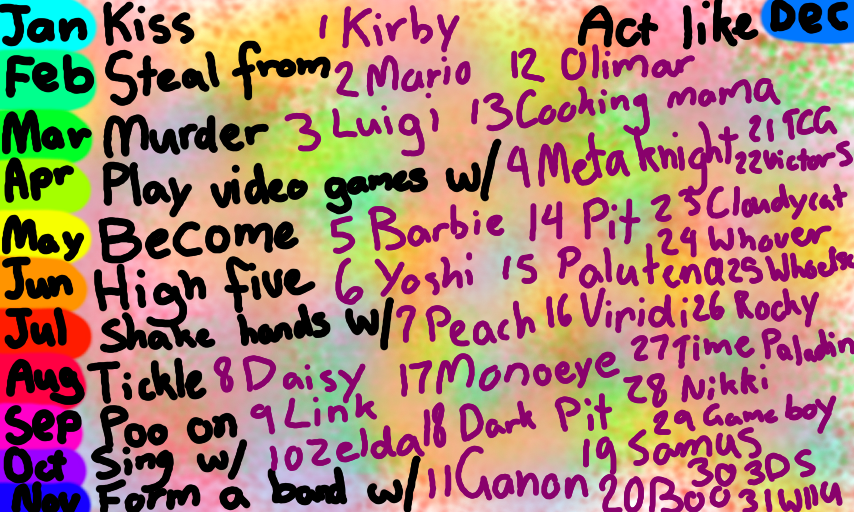 Jan Kiss 1 Kirby Act like Dec
Feb Steal from 2 Mario 12 Olimar
Mar Murder 3 Luigi 13 Cooking mama 21 TCG
Apr Play video games w/ 4 Meta knight 22 Victors
May Become 5 Barbie 14 Pit 23 Cloudycat
24 Whover
Jun High five 6 Yoshi 15 Palutena 25
Jul Shake hands w/ 7 Peach 16 Viridi 26 Rocky
27 Time Paladin
Aug Tickle 8 Daisy 17 Monoeye 28 Nikki
Sep Poo on 9 Link 18 Dark Pit 29 Game boy
Oct Sing w/ 10 Zelda 19 Samus 30 3DS
Nov Form a band w/ 11 Ganon 20 Boo 31 Wii U